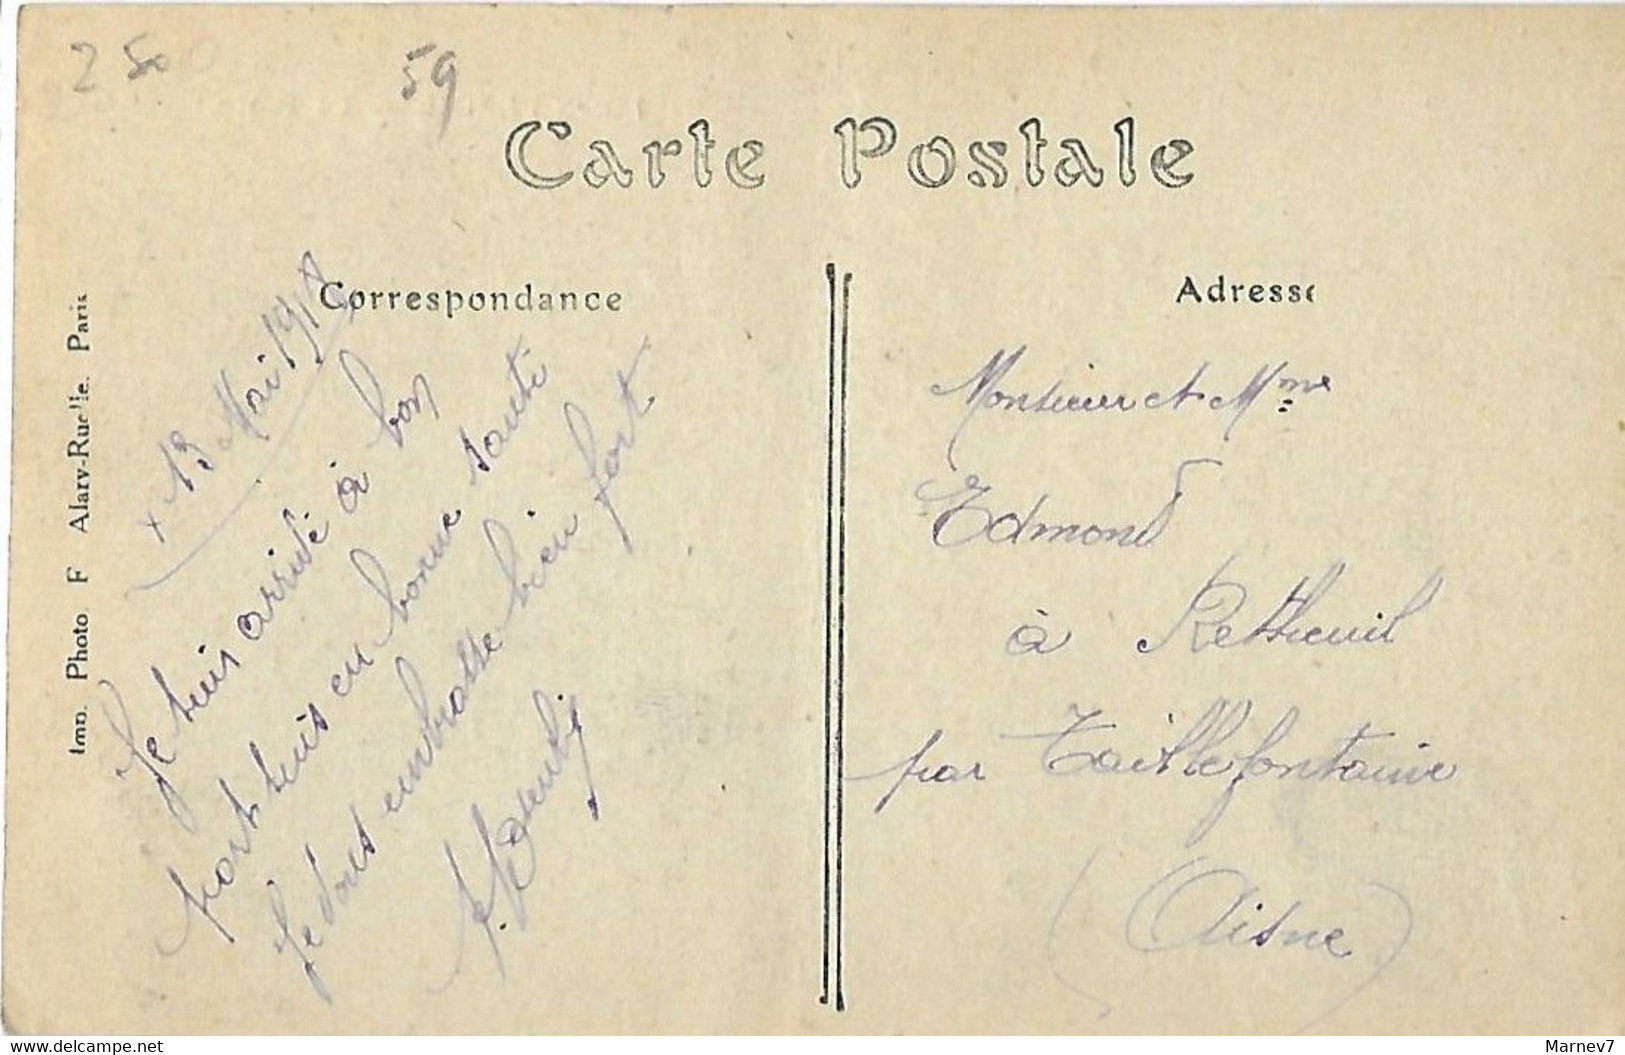 2 50
59
Carte Postale
Correspondance
Adresse
Imp. Photo F Alary-Ruelle. Paris
13 Mai 191
Je suis arrivé à bon
port suis en bonne santé
Je vous embrasse bien fort
Monsieur et Mme
Edmond
à Retheuil
par Taillefontaine
(Aisne)
www.delcampe.net
Marnev7